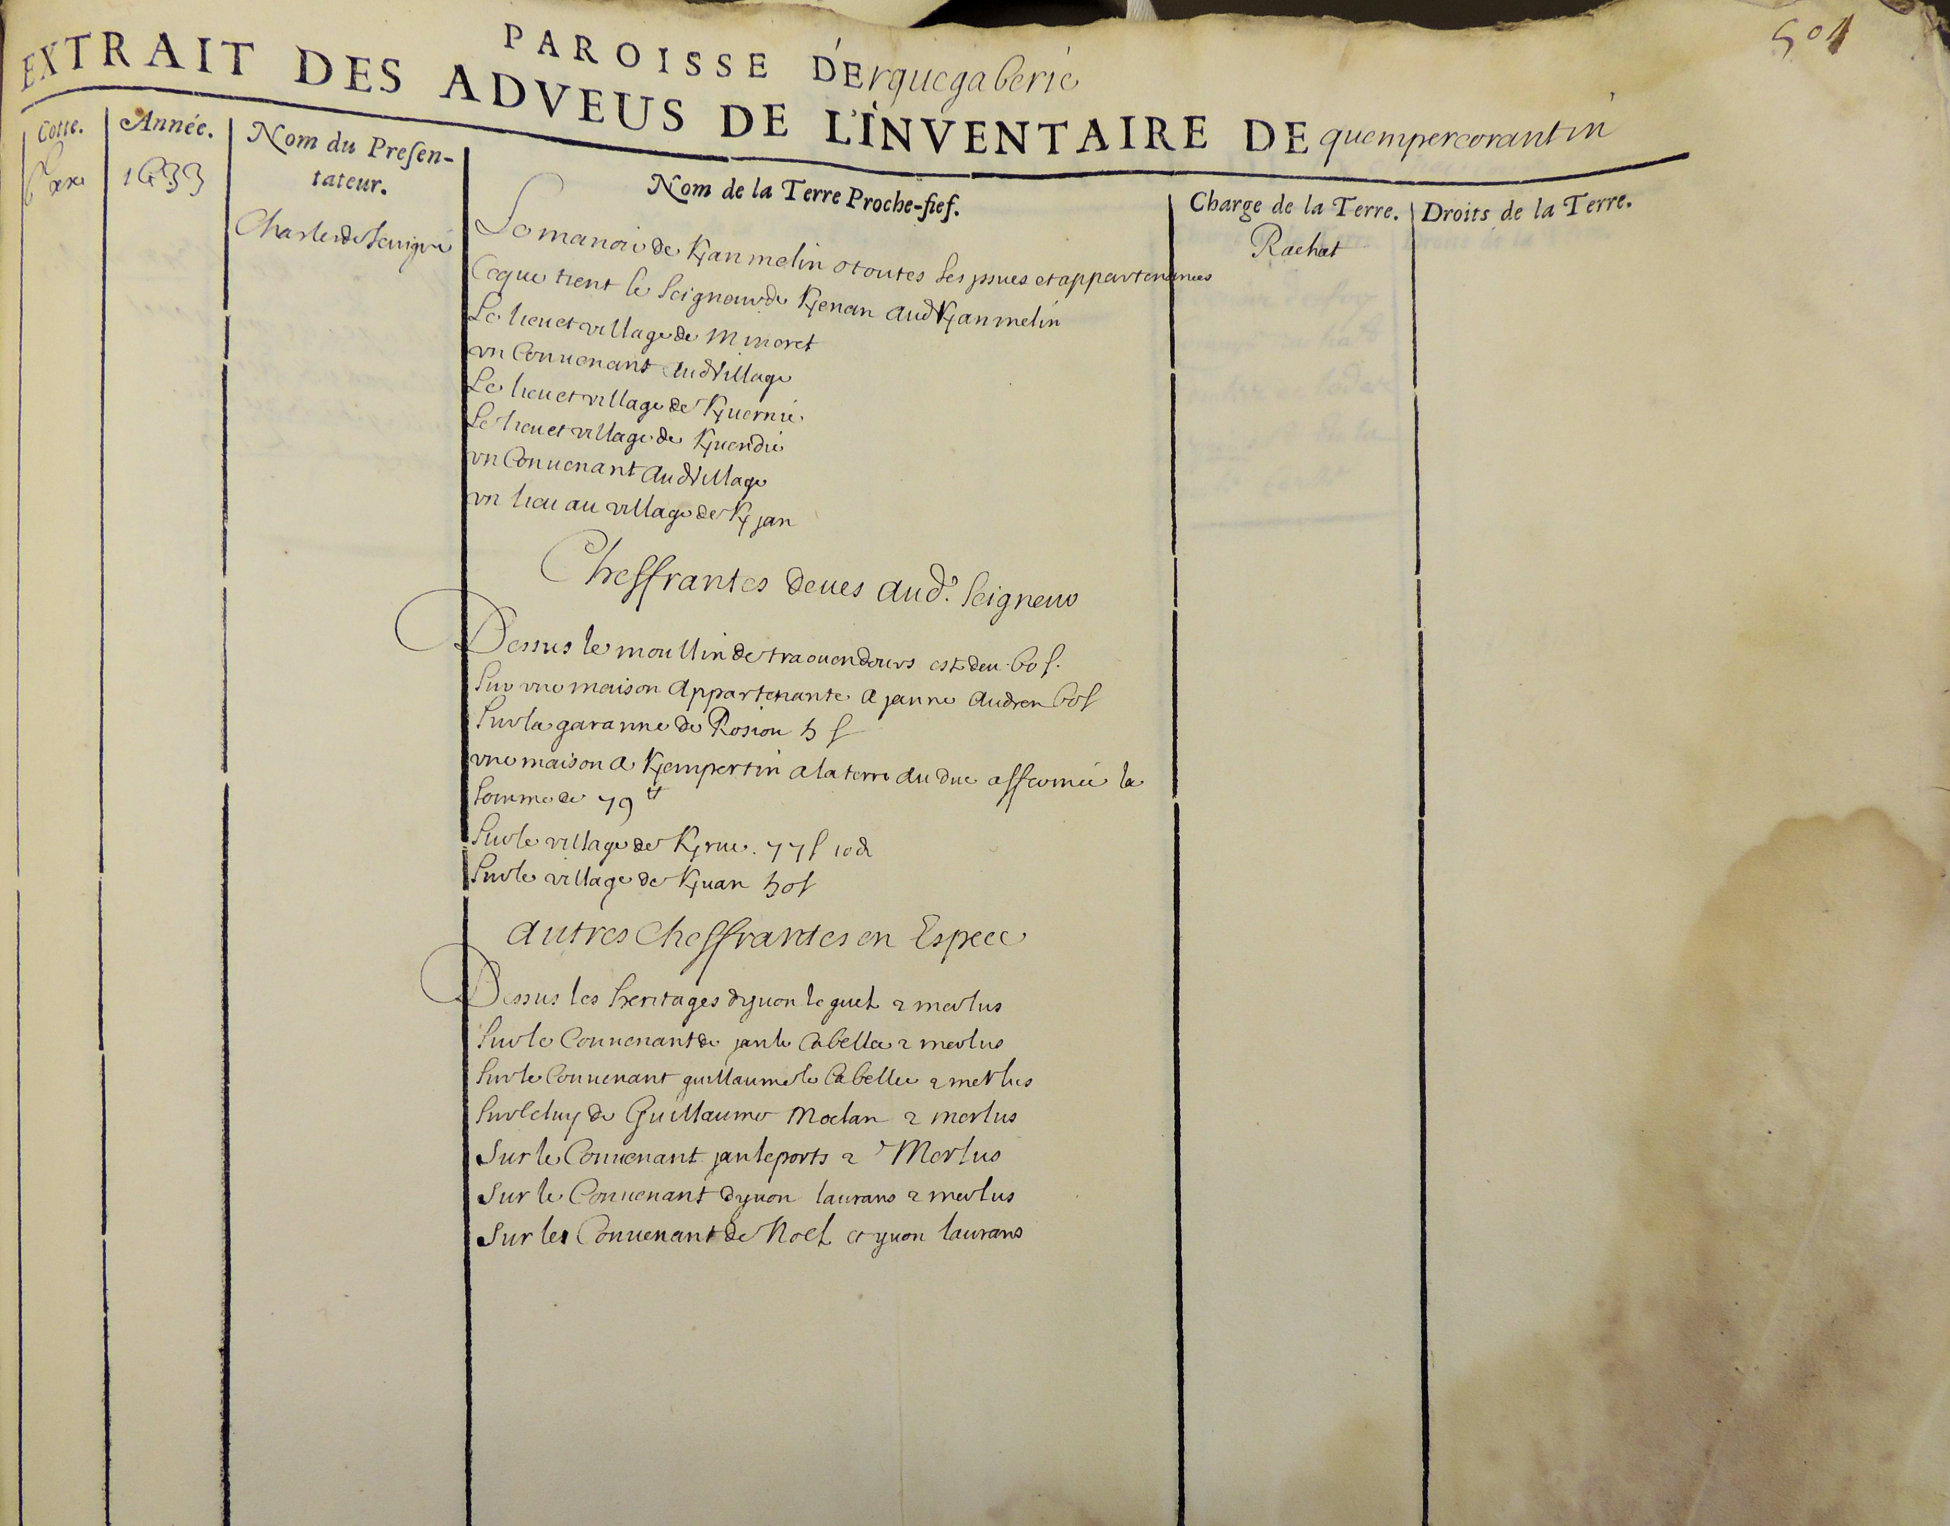 504
PAROISSE D'Erquegaberic
EXTRAIT DES ADVEUS DE L'INVENTAIRE DE quempercorantin
Cotte.
Année.
Nom du Presen-
tateur.
Nom de la Terre Proche-fief.
Charge de la Terre.
Droits de la Terre.
1633
Charles de Seuigné
Rachat
Le manoir de Kjanmelin o toutes ses yssues et appartenances
Ce que tient le seigneur de Kjenan aud Kjanmelin
Le lieu et village de Minoret
vn Conuenant aud Village
Le lieu et village de Kjuernic
Le lieu et village de Kjuendie
vn Conuenant aud Village
vn lieu au village de Kjjan
Cheffrantes deues aud. Seigneur
Dessus le moullin de traouendours est deu 60 s.
Sur vne maison appartenante a janne audren 60 s
Sur la garanne de Rosiou 5 s
vne maison a Kjempertin a la terre au duc affermée la
Somme de 79 tt
Sur le village de Kjrue. 77 s 10 d
Sur le village de Kjuan 50 s
autres Cheffrantes en Espece
Dessus les heritages dyuon le guel 2 merlus
Sur le Conuenant de jan le Cabellec 2 merlus
Sur le Conuenant guillaume le Cabellec 2 merlus
Sur Celuy de Guillaume Moelan 2 merlus
Sur le Conuenant jan le ports 2 Merlus
Sur le Conuenant dyuon laurans 2 merlus
Sur les Conuenant de Noel et yuon laurans